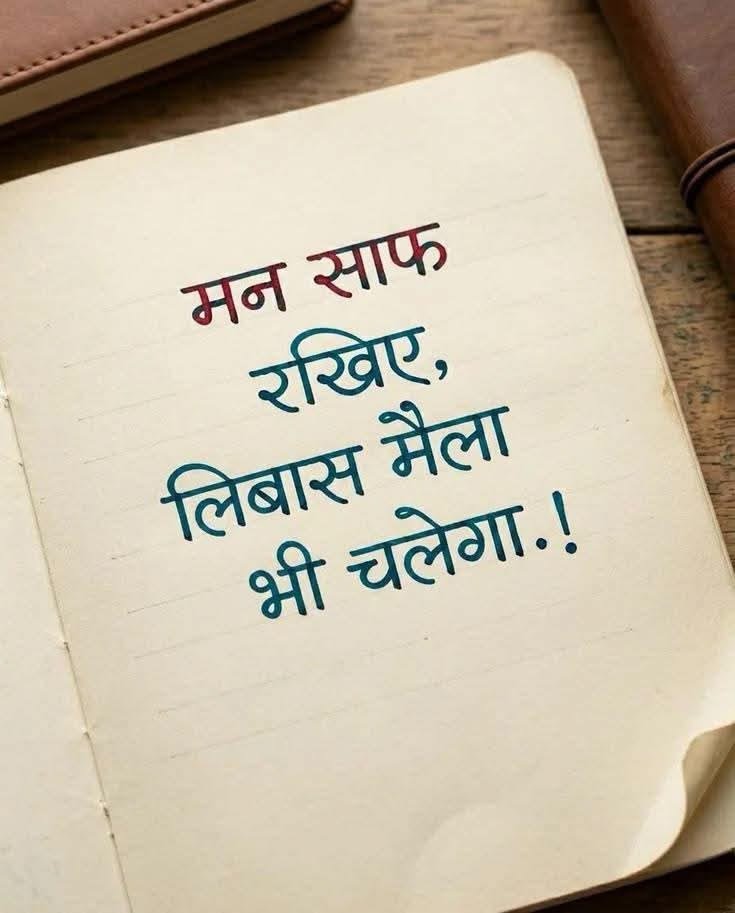 मन साफ
रखिए,
लिबास मैला
भी चलेगा.!